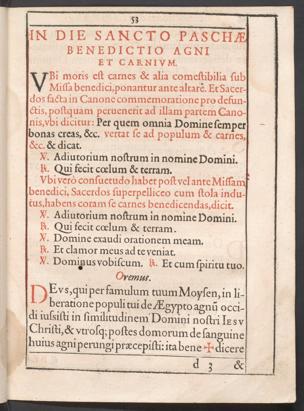 53
IN DIE SANCTO PASCHÆ
BENEDICTIO AGNI
ET CARNIVM.
VBi moris est carnes & alia comestibilia sub
Missa benedici, ponantur ante altarē. Et Sacer-
dos facta in Canone commemoratione pro defun-
ctis, postquam peruenerit ad illam partem Cano-
nis, vbi dicitur: Per quem omnia Domine semper
bonas creas, &c. vertat se ad populum & carnes,
&c. & dicat.
℣. Adiutorium nostrum in nomine Domini.
℟. Qui fecit cœlum & terram.
Vbi verò consuetudo habet post vel ante Missam
benedici, Sacerdos superpelliceo cum stola indu-
tus, habens coram se carnes benedicendas, dicit.
℣. Adiutorium nostrum in nomine Domini.
℟. Qui fecit cœlum & terram.
℣. Domine exaudi orationem meam.
℟. Et clamor meus ad te veniat.
℣. Dominus vobiscum. ℟. Et cum spiritu tuo.
Oremus.
DEVS, qui per famulum tuum Moysen, in li-
beratione populi tui de Ægypto agnū occi-
di iussisti in similitudinem Domini nostri IESV
Christi, & vtrosq; postes domorum de sanguine
huius agni perungi præcepisti: ita bene ✠ dicere
d 3 &